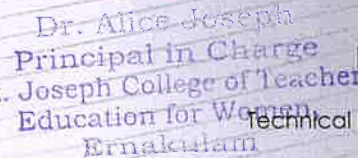 Dr. Alice Joseph
Principal in Charge
. Joseph College of Teacher
Education for Women
Technical
Ernakulam